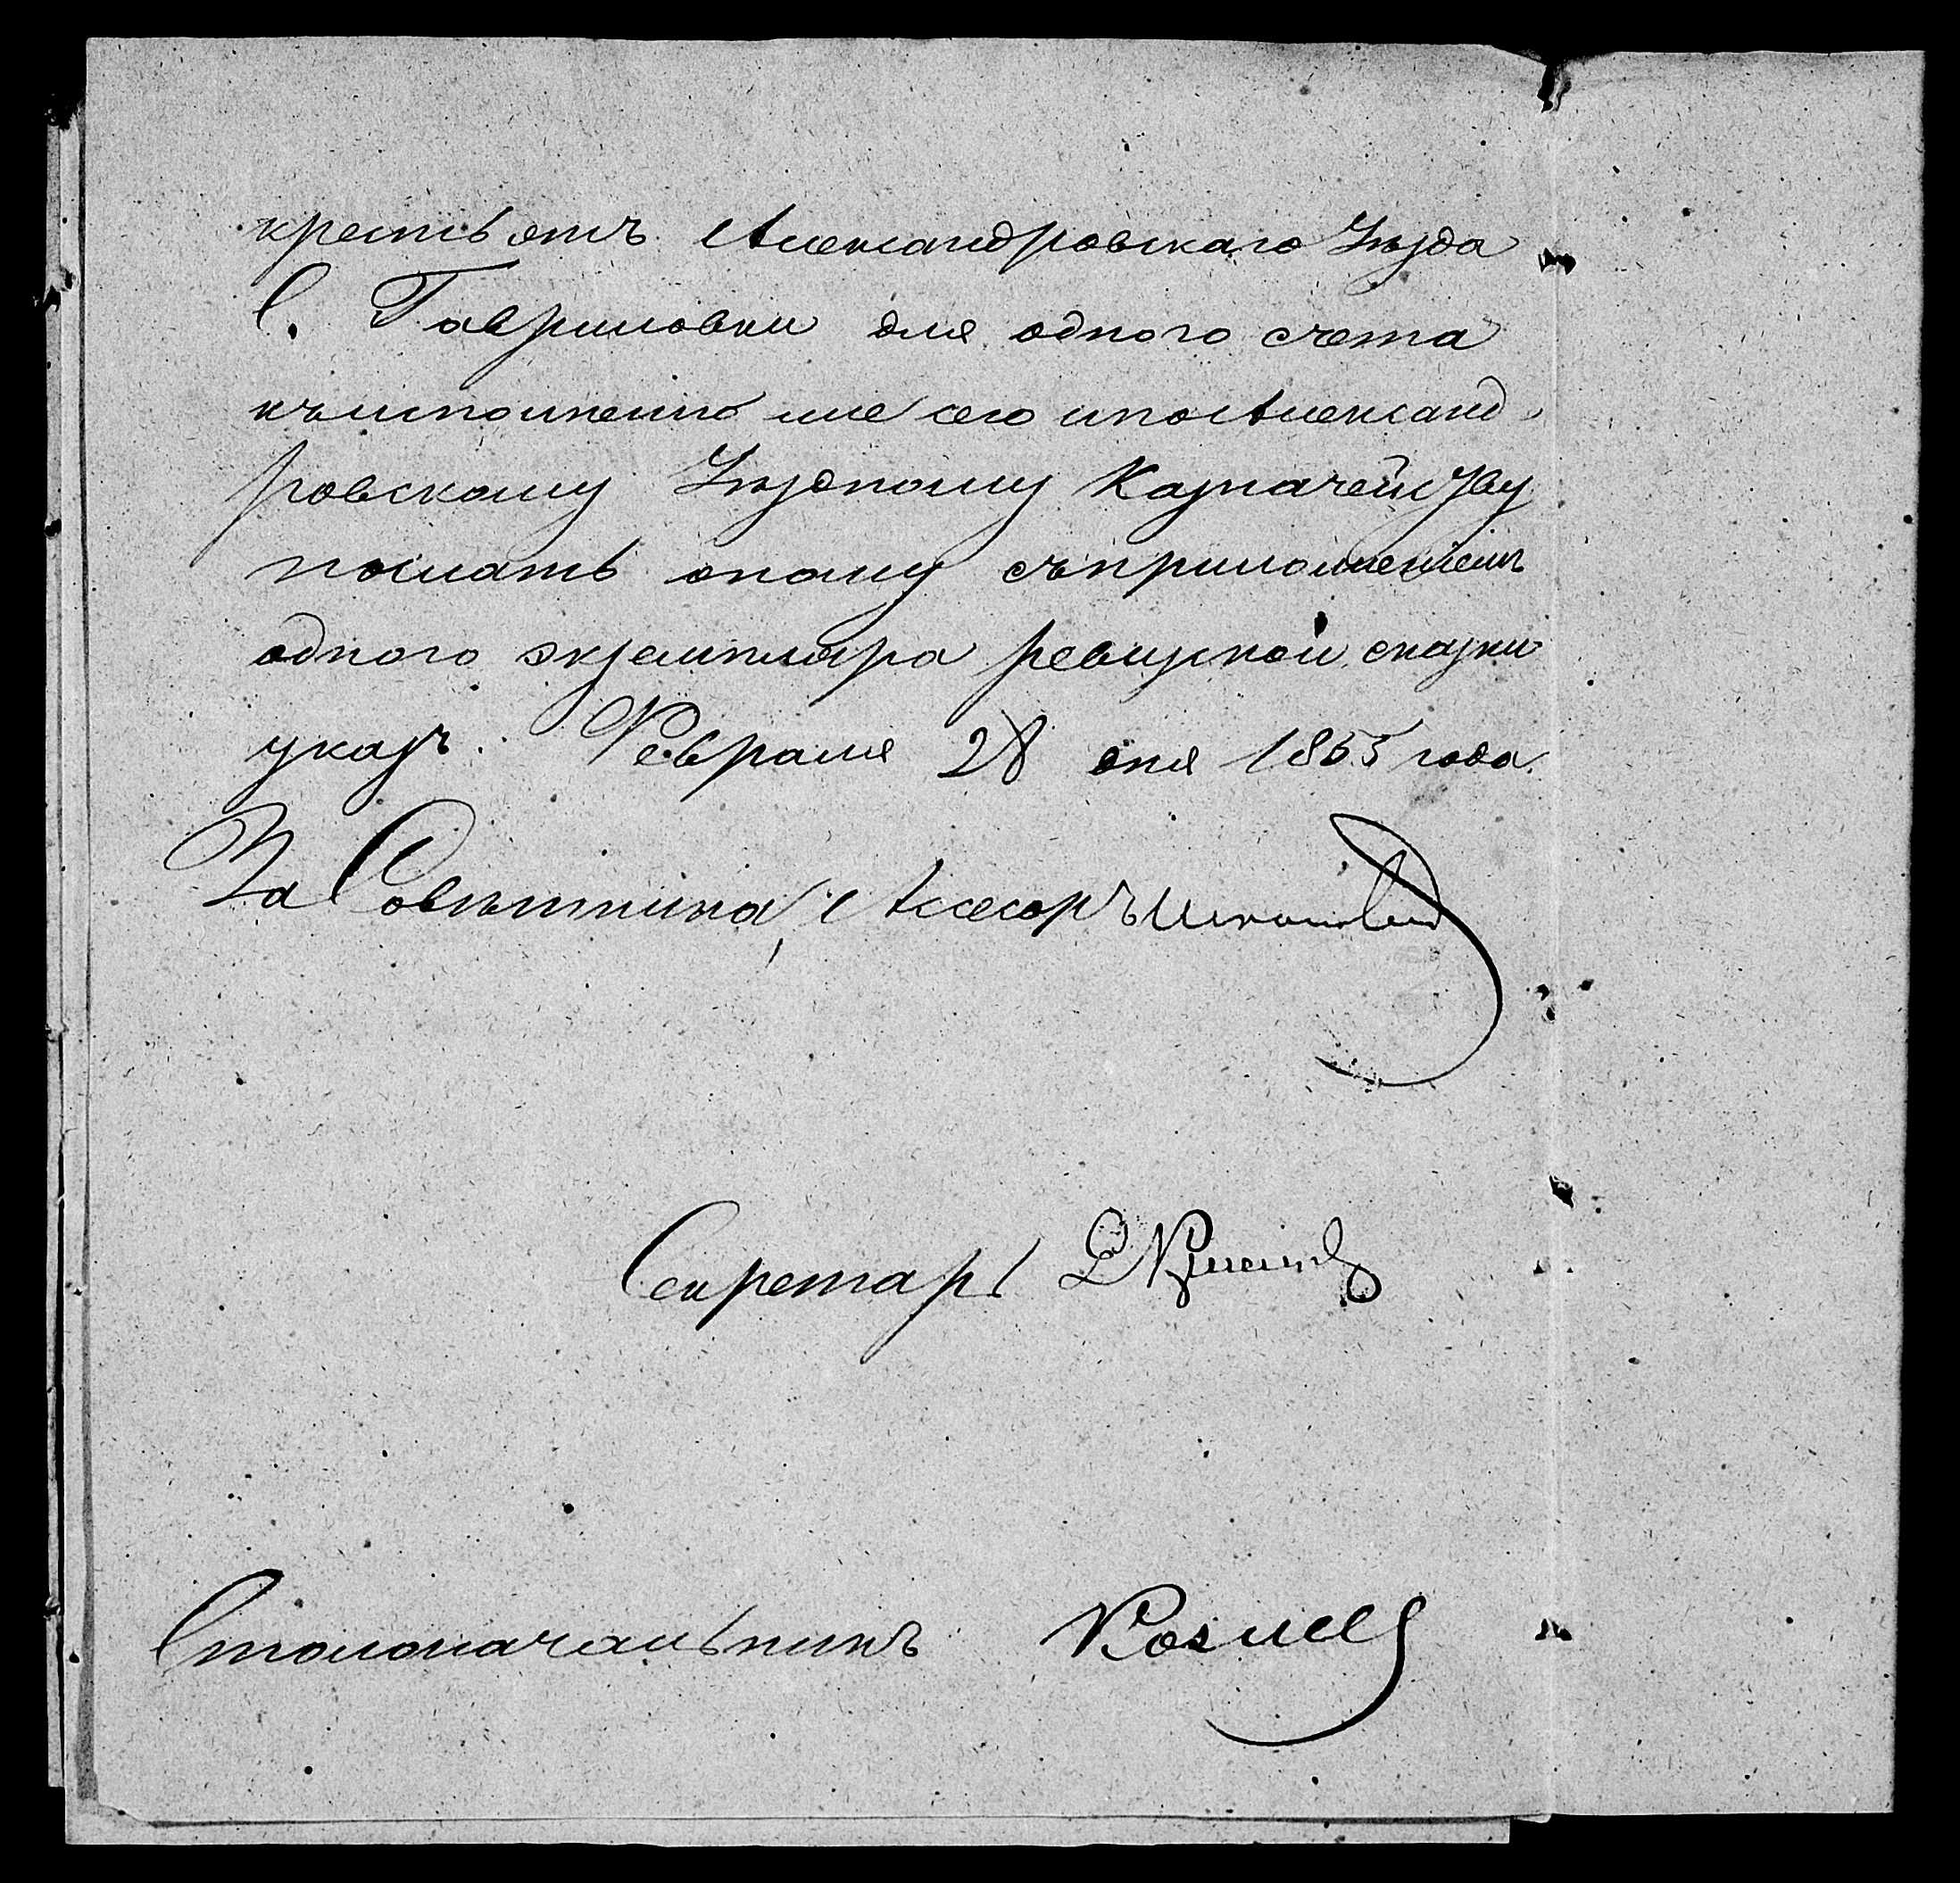 крестьянъ Александровскаго Уѣзда
С. Гавриловки для одного счета
къ исполненію же сего и по Александ
ровскому Уѣздному Казначейству
послать оному съ приложеніемъ
одного экземпляра ревизской сказки
указъ. Февраля 28 дня 1855 года.
За Совѣтника, Ассесоръ
Секретарь
Столоначальникъ